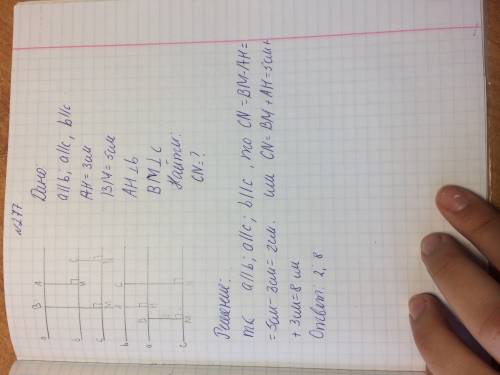 №277
Дано:
a||b; a||c, b||c
AH = 3см
BM = 5см
AH ⊥ b
BM ⊥ c
Найти:
CN = ?
Решение:
тк a||b; a||c; b||c, то CN = BM - AH =
= 5см - 3см = 2см. или CN = BM + AH = 5см +
+ 3см = 8 см
Ответ: 2; 8